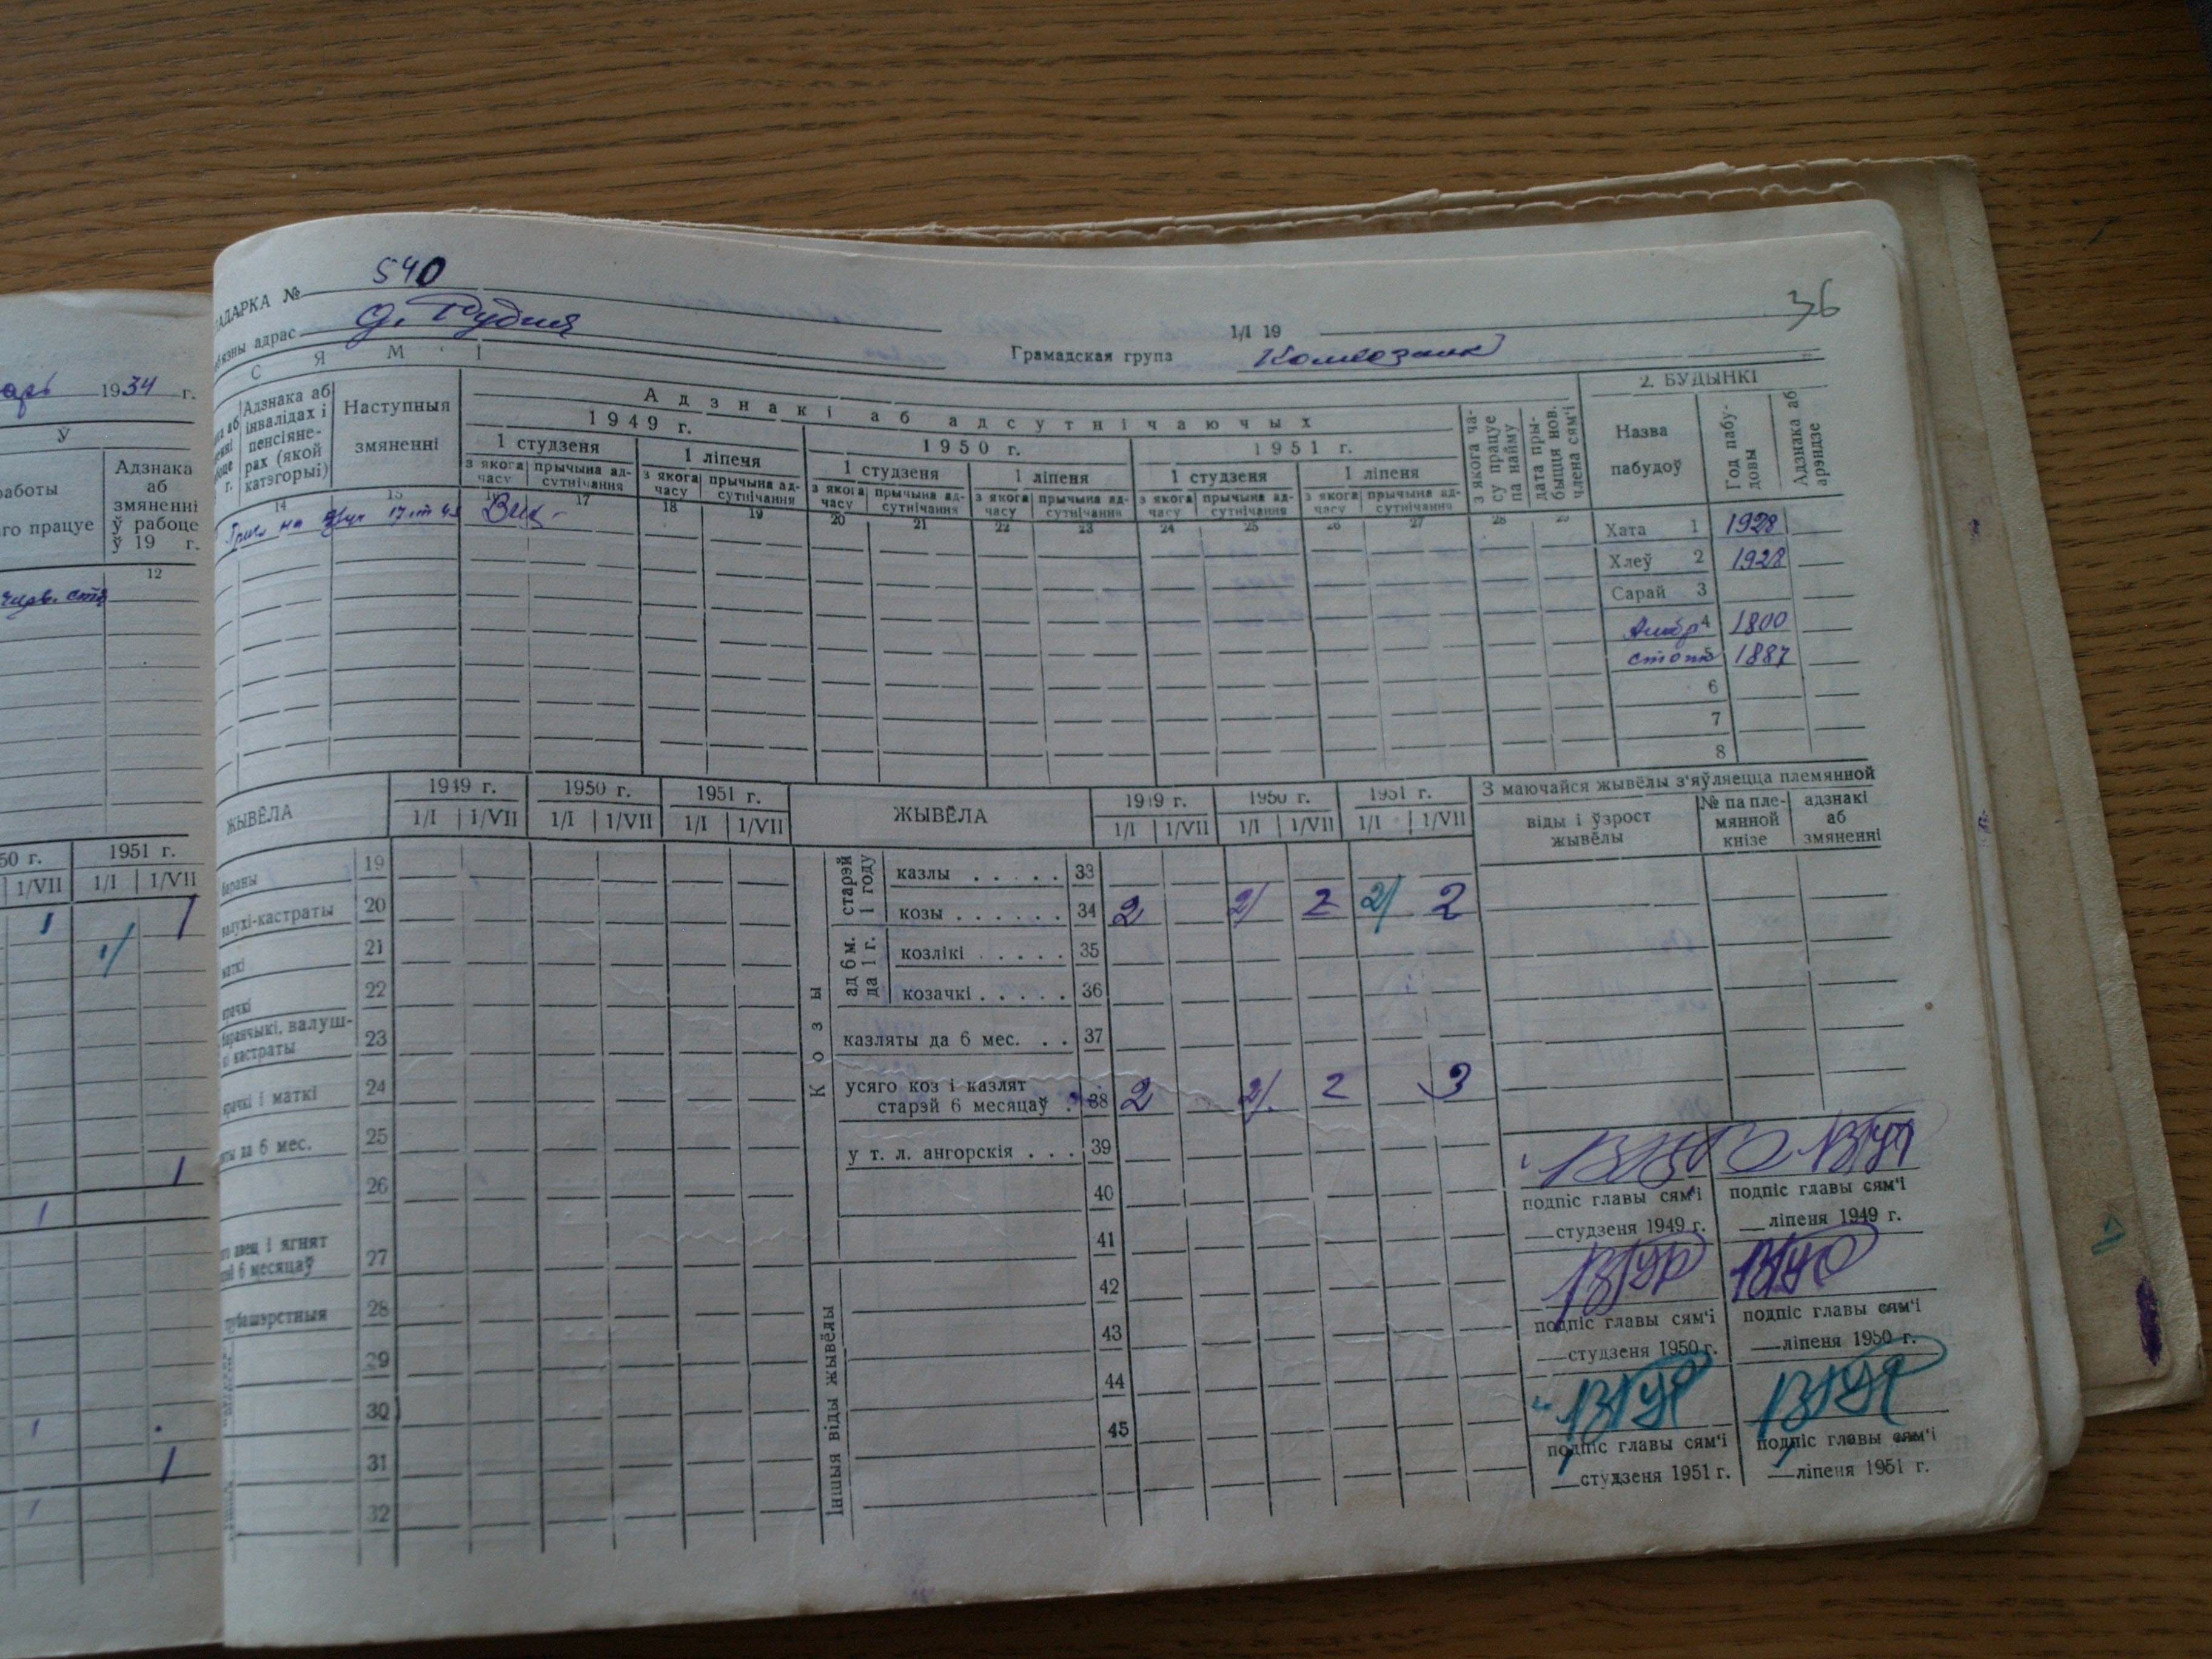 АДАРКА № 540
язны адрас д. Рудня
1/I 19
36
Грамадская група Колгозник
С Я М ' І
Адзнака аб інвалідах і пенсіянерах (якой катэгорыі)
Наступныя змяненні
Адзнакі аб адсутнічаючых
1949 г.
1950 г.
1951 г.
1 студзеня
1 ліпеня
1 студзеня
1 ліпеня
1 студзеня
1 ліпеня
з якога часу
прычына адсутнічання
з якога часу
прычына адсутнічання
з якога часу
прычына адсутнічання
з якога часу
прычына адсутнічання
з якога часу
прычына адсутнічання
з якога часу
прычына адсутнічання
з якога часу працуе па найму
дата прыбыцця нов. члена сям'і
14 15 17 18 19 20 21 22 23 24 25 26 27 28 29
2. БУДЫНКІ
Назва пабудоў
Год пабудовы
Адзнака аб арэндзе
Хата 1 1928
Хлеў 2 1928
Сарай 3
Амбр 4 1800
стопк 5 1887
6
7
8
1934 г.
Ў
работы
го працуе
Адзнака аб змяненні ў рабоце ў 19 г.
12
50 г. 1951 г.
1/VII 1/I 1/VII
1 1/ 1
1
1
1
1
1
ЖЫВЁЛА
1949 г. 1950 г. 1951 г.
1/I 1/VII 1/I 1/VII 1/I 1/VII
бараны 19
валухі-кастраты 20
маткі 21
ярачкі 22
баранчыкі, валушкі кастраты 23
ярачкі і маткі 24
да 6 мес. 25
26
авец і ягнят
6 месяцаў 27
грубашэрстныя 28
29
30
31
32
ЖЫВЁЛА
1949 г. 1950 г. 1951 г.
1/I 1/VII 1/I 1/VII 1/I 1/VII
Козы
старэй 1 году
казлы 33
козы 34 2 2/ 2 2/ 2
ад 6 м. да 1 г.
козлікі 35
козачкі 36
казляты да 6 мес. 37
усяго коз і казлят
старэй 6 месяцаў 38 2 2/. 2 3
у т. л. ангорскія 39
40
41
Іншыя віды жывёлы
42
43
44
45
З маючайся жывёлы з'яўляецца племянной
віды і ўзрост жывёлы
№ па племянной кнізе
адзнакі аб змяненні
подпіс главы сям'і подпіс главы сям'і
студзеня 1949 г. ліпеня 1949 г.
подпіс главы сям'і подпіс главы сям'і
студзеня 1950 г. ліпеня 1950 г.
подпіс главы сям'і подпіс главы сям'і
студзеня 1951 г. ліпеня 1951 г.